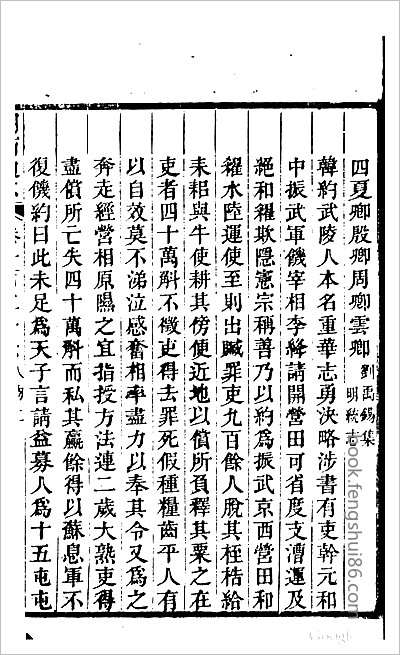 四夏卿殷卿周卿雲卿劉禹錫集
明統志
韓約武陵人本名重華志勇決略涉書有吏幹元和
中振武軍饑宰相李絳請開營田可省度支漕運及
絕和糴欺隱憲宗稱善乃以約為振武京西營田和
糴水陸運使至則出贓罪吏九百餘人脫其桎梏給
耒耜與牛使耕其傍便近地以償所負釋其粟之在
吏者四十萬斛不徵吏得去罪死假種糧齒平人有
以自效莫不涕泣感奮相率盡力以奉其令又為之
奔走經營相原隰之宜指授方法連二歲大熟吏得
盡償所亡失四十萬斛而私其贏餘得以蘇息軍不
復饑約曰此未足為天子言請益募人為十五屯屯
book.fengshui86.com